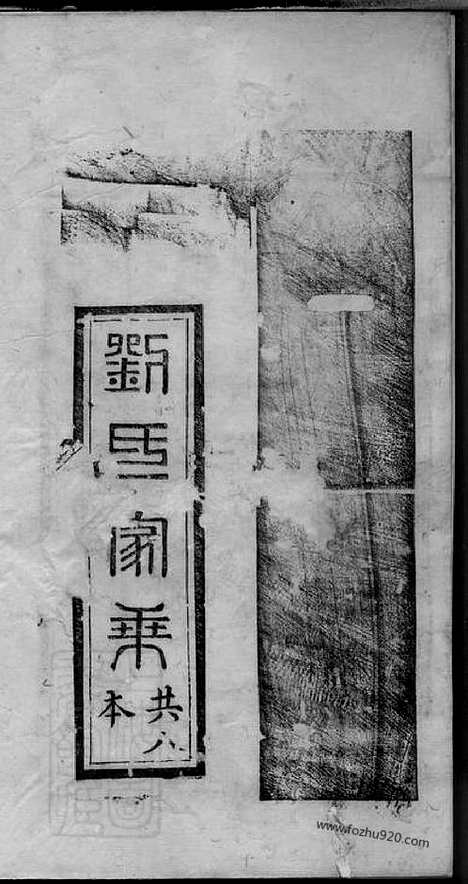 劉氏家乘
共八
本
www.fozhu920.com